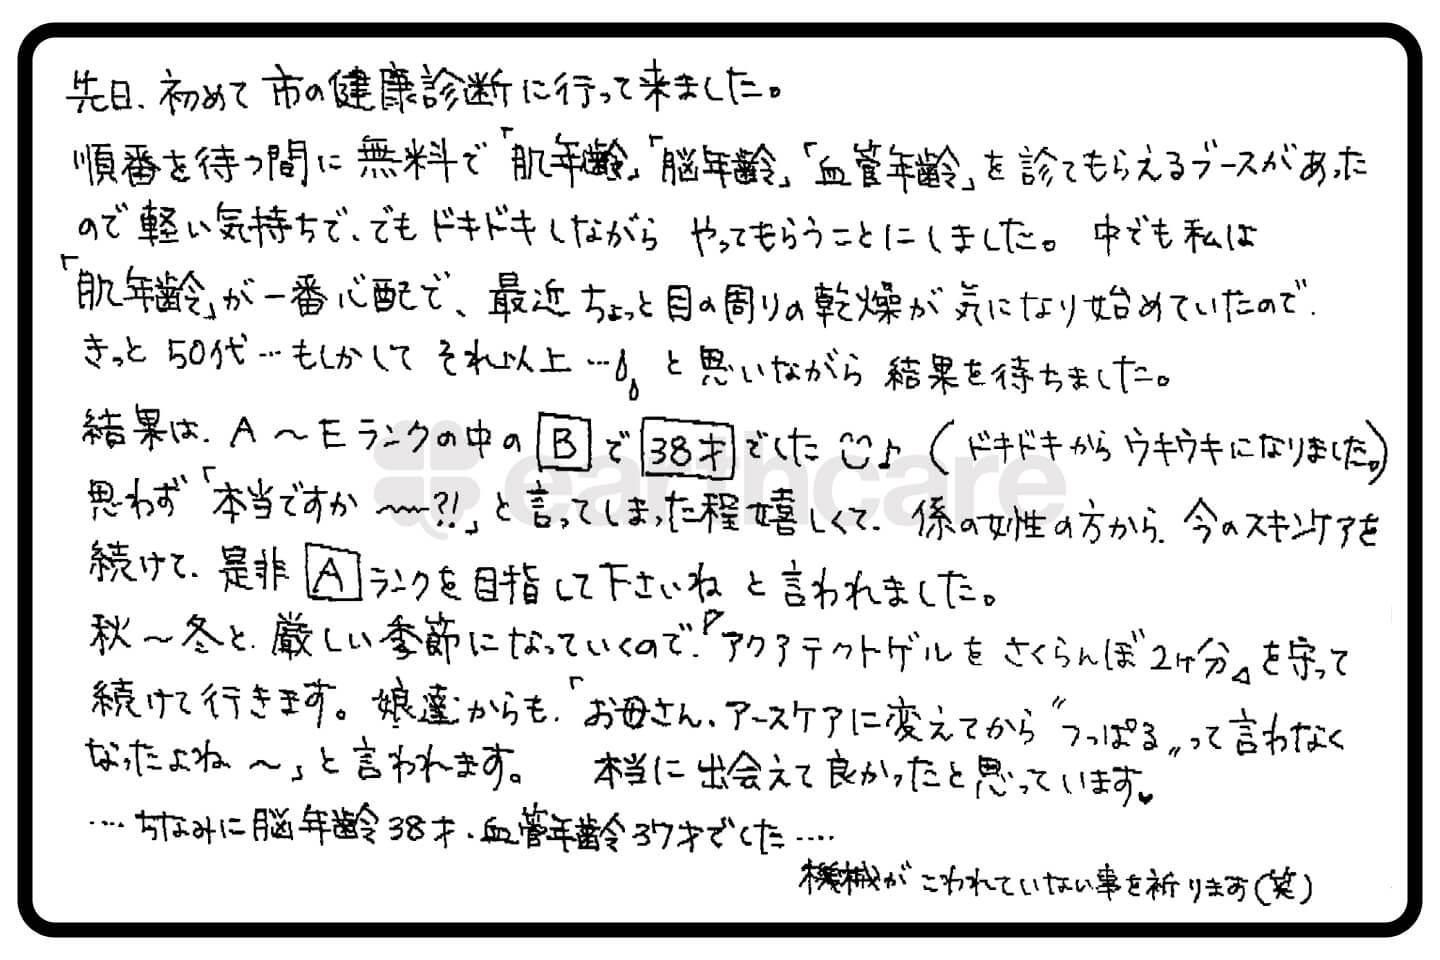 先日、初めて市の健康診断に行って来ました。
順番を待つ間に無料で「肌年齢」「脳年齢」「血管年齢」を診てもらえるブースがあった
ので軽い気持ちで、でもドキドキしながら やってもらうことにしました。 中でも私は
「肌年齢」が一番心配で、最近ちょっと目の周りの乾燥が気になり始めていたので、
きっと50代…もしかして それ以上… と思いながら 結果を待ちました。
結果は、A～Eランクの中の B で 38才 でした ♪ (ドキドキから ウキウキになりました。)
思わず「本当ですか～～?!」と言ってしまった程嬉しくて、係の女性の方から、今のスキンケアを
続けて、是非 A ランクを目指して下さいね と言われました。
秋～冬と、厳しい季節になっていくので、『アクアテクトゲルをさくらんぼ2ヶ分』を守って
続けて行きます。娘達からも、「お母さん、アースケアに変えてから〝つっぱる〟って言わなく
なったよね～」と言われます。 本当に出会えて良かったと思っています♥
…ちなみに脳年齢38才、血管年齢37才でした…
機械がこわれていない事を祈ります(笑)
earthcare